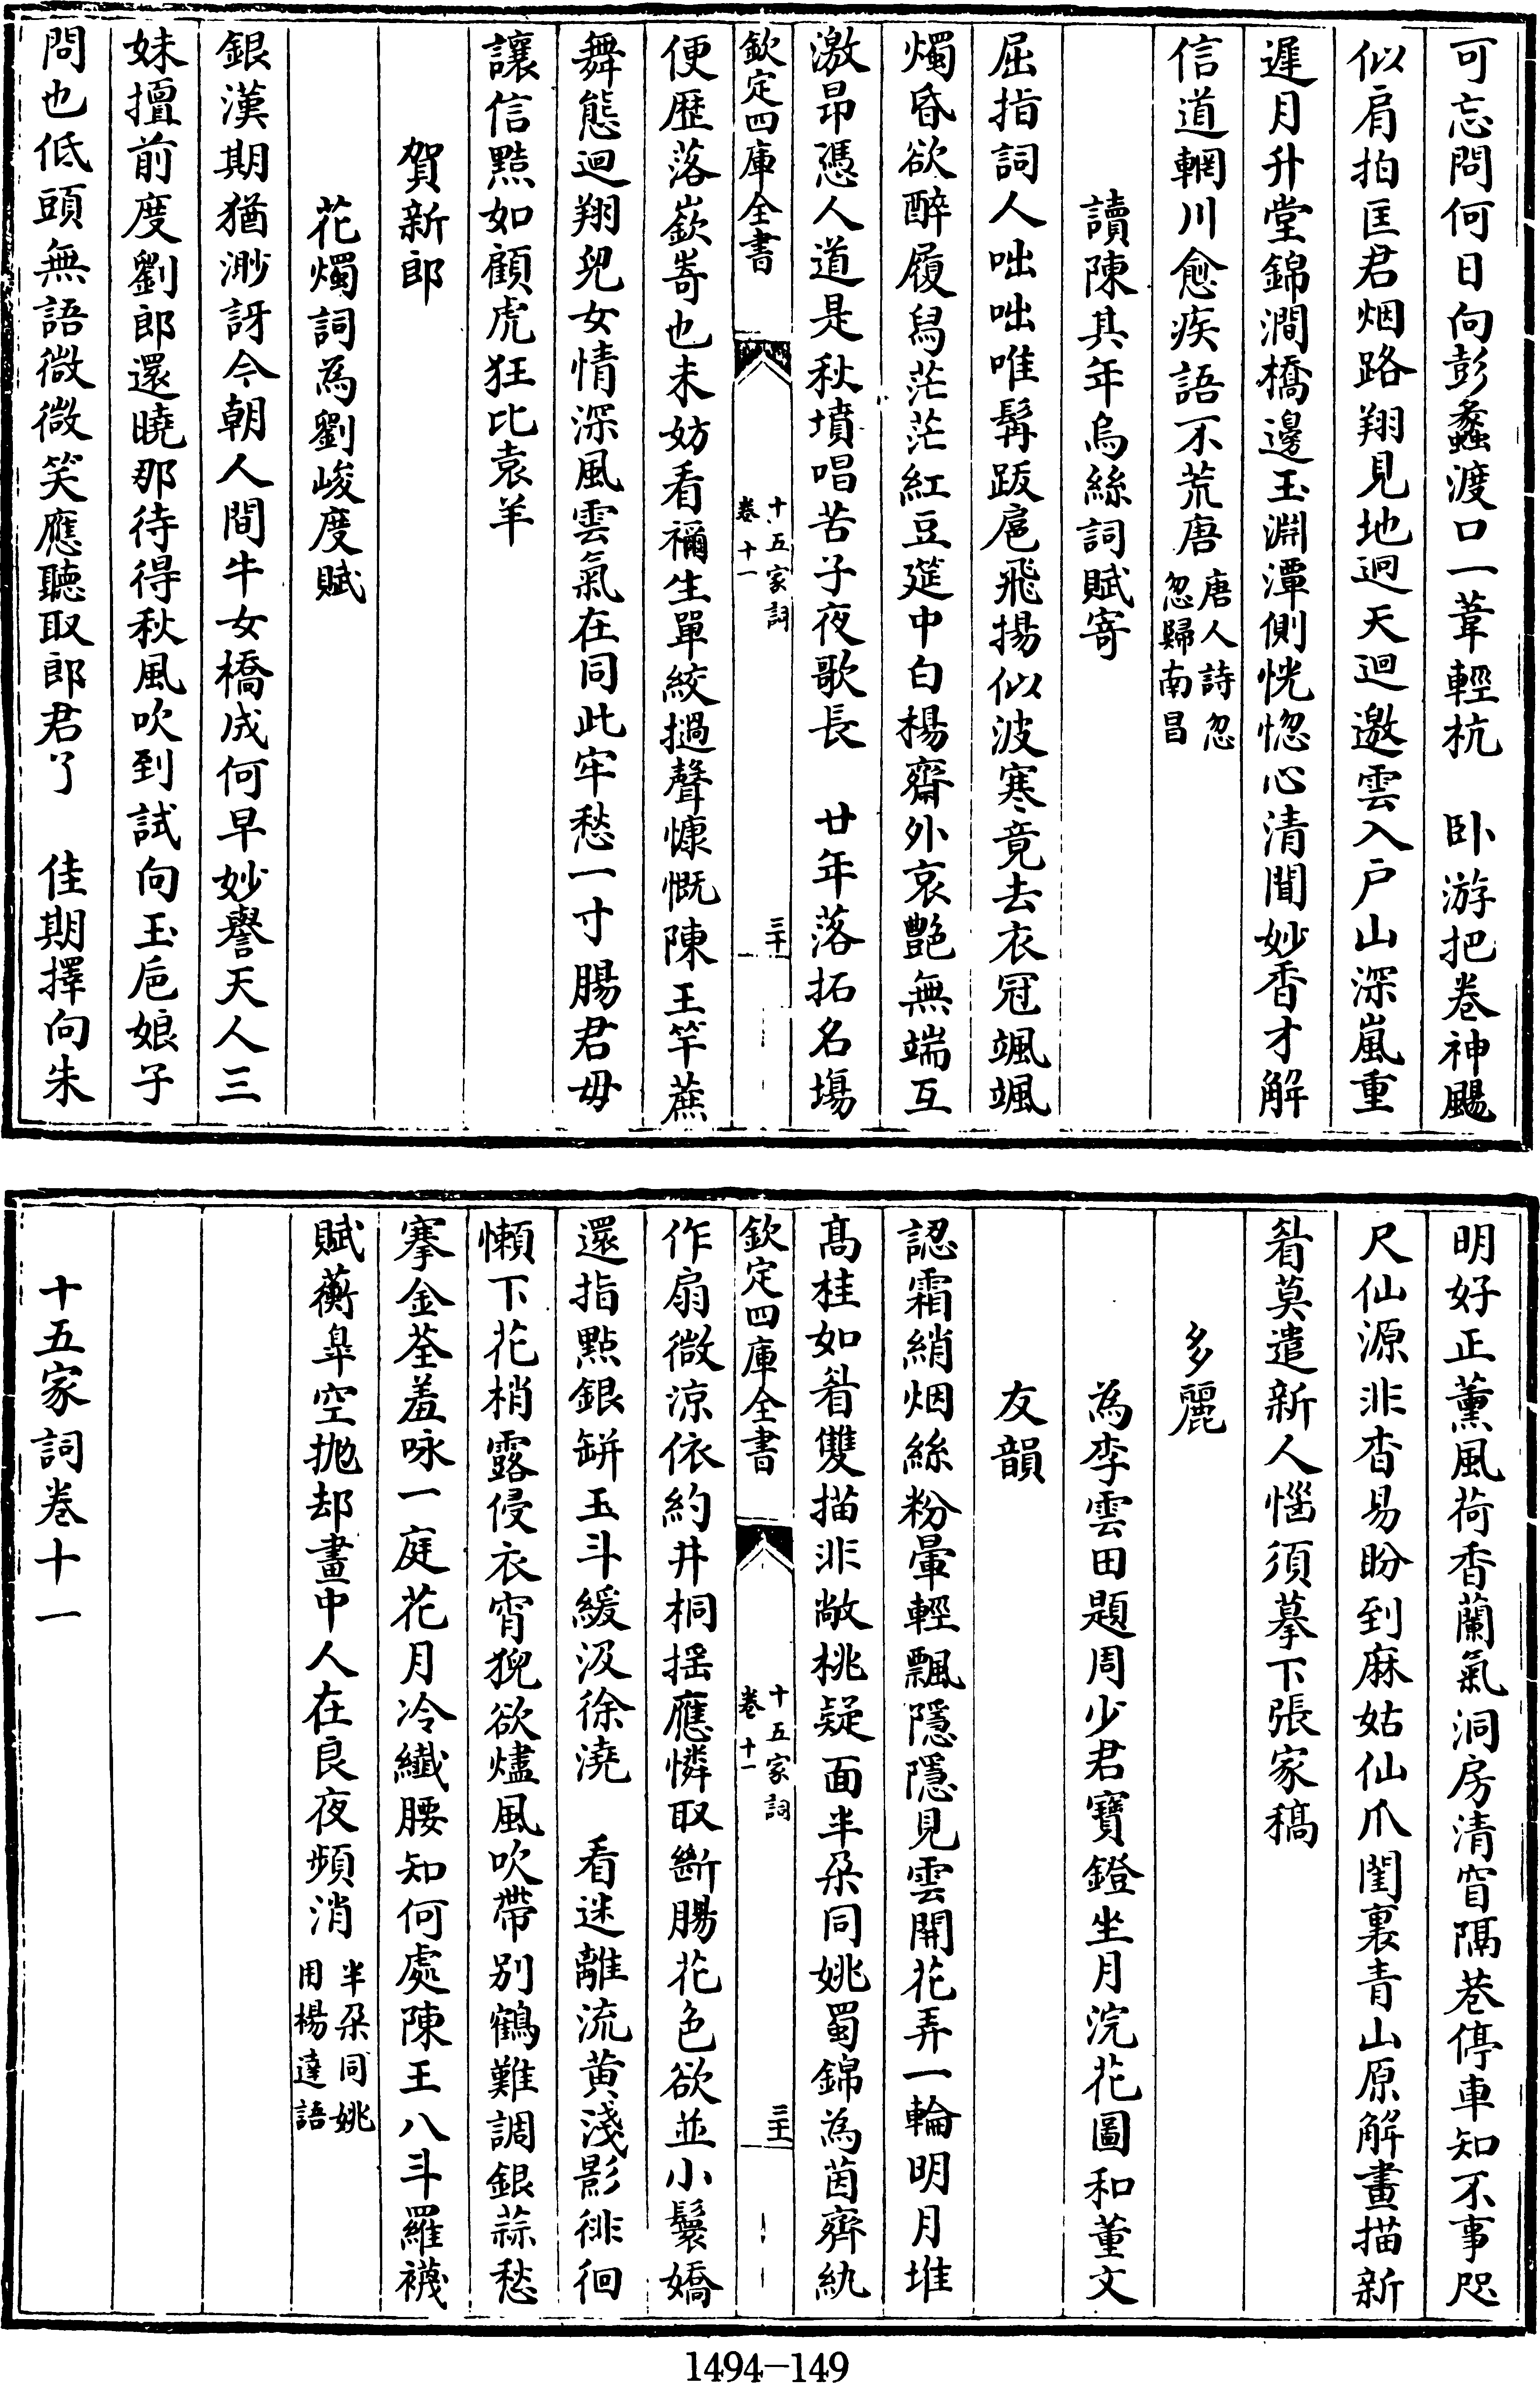 可忘問何日向彭蠡渡口一葦輕杭　卧游把卷神颺
似肩拍匡君烟路翔見地迥天迴邀雲入户山深嵐重
遲月升堂錦澗橋邊玉淵潭側恍惚心清聞妙香才解
信道輞川愈疾語不荒唐唐人詩忽忽歸南昌
讀陳其年烏絲詞賦寄
屈指詞人咄咄唯髯跋扈飛揚似波寒竟去衣冠颯颯
燭昏欲醉履舄茫茫紅豆筵中白楊齋外哀艷無端互
激昂憑人道是秋墳唱苦子夜歌長　廿年落拓名塲
欽定四庫全書　十五家詞卷十一　三十
便歷落嶔崎也未妨看禰生單絞撾聲慷慨陳王竿蔗
舞態迴翔兒女情深風雲氣在同此牢愁一寸腸君毋
讓信黠如顧虎狂比袁羊
賀新郎
花燭詞為劉峻度賦
銀漢期猶渺訝今朝人間牛女橋成何早妙譽天人三
妹擅前度劉郎還曉那待得秋風吹到試向玉巵娘子
問也低頭無語微微笑應聽取郎君了　佳期擇向朱
明好正薰風荷香蘭氣洞房清窅隔巷停車知不事咫
尺仙源非杳易盼到麻姑仙爪閨裏青山原解畫描新
㫺莫遣新人惱須摹下張家稿
多麗
為李雲田題周少君寶鐙坐月浣花圖和董文
友韻
認霜綃烟絲粉暈輕飄隱隱見雲開花弄一輪明月堆
髙桂如㫺雙描非敞桃疑面半朶同姚蜀錦為茵齊紈
欽定四庫全書　十五家詞卷十一　三十一
作扇微涼依約井桐揺應憐取斷腸花色欲並小鬟嬌
還指點銀缾玉斗緩汲徐澆　看迷離流黄淺影徘徊
懶下花梢露侵衣宵猊欲燼風吹帶别鶴難調銀蒜愁
搴金荃羞咏一庭花月冷纎腰知何處陳王八斗羅襪
賦蘅臯空抛却畫中人在良夜頻消半朶同姚用楊達語
十五家詞卷十一
1494—149